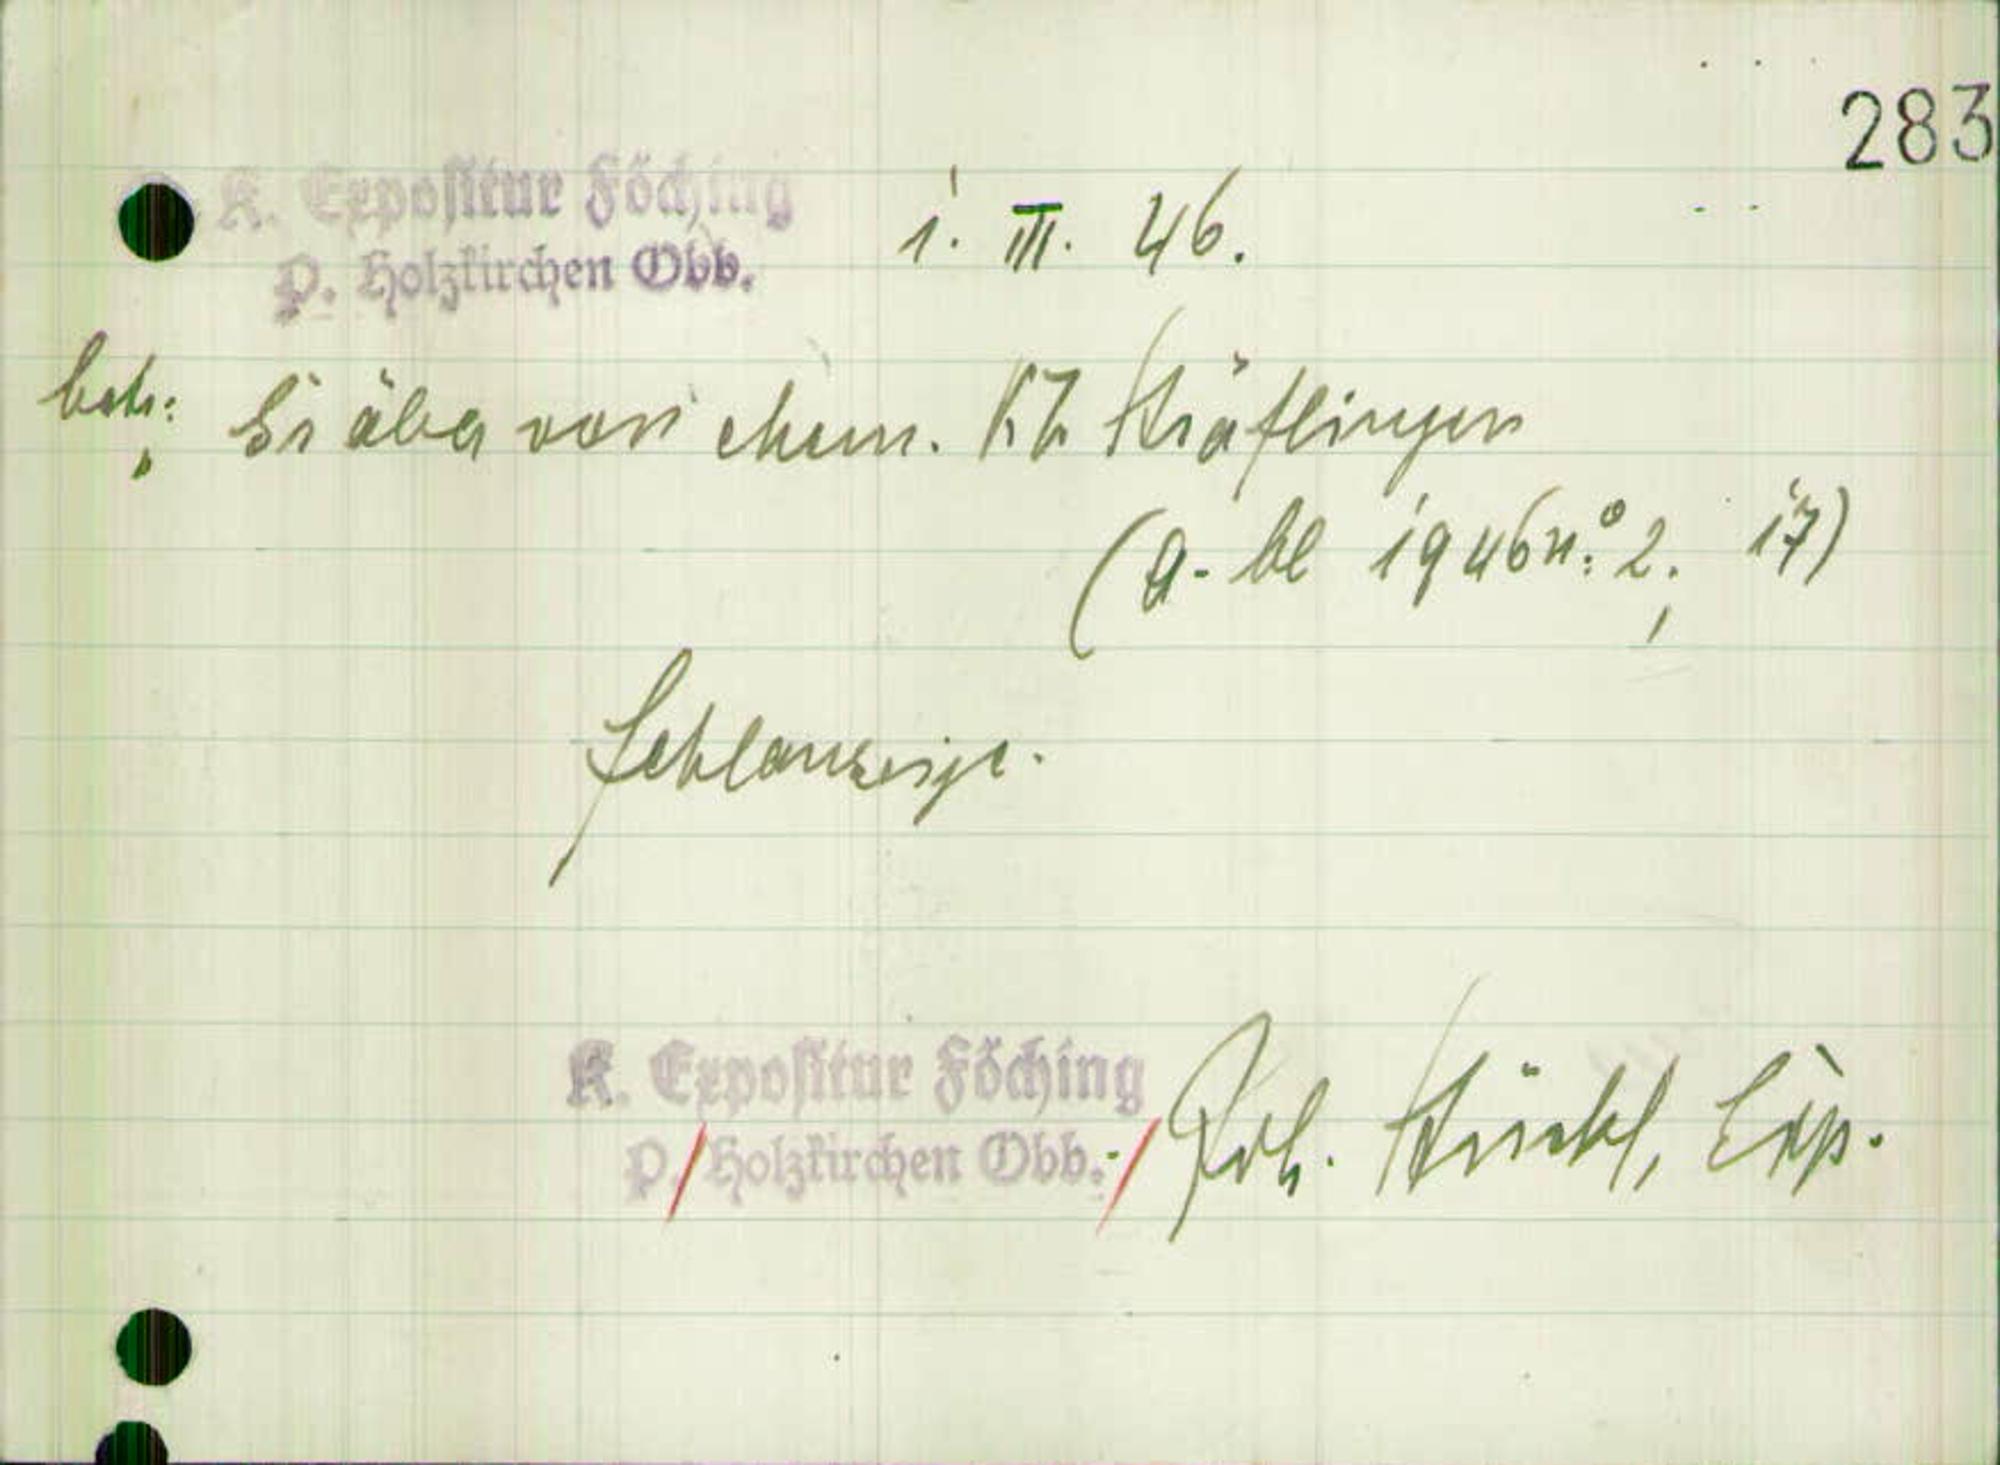 283
K. Expositur Föching
P. Holzkirchen Obb.
1. III. 46.
betr: Gräber von ehem. KZ Häftlingen
(A-bl 1946 N.° 2, 17)
Fehlanzeige.
K. Expositur Föching
P. Holzkirchen Obb.
Rob. Exp.